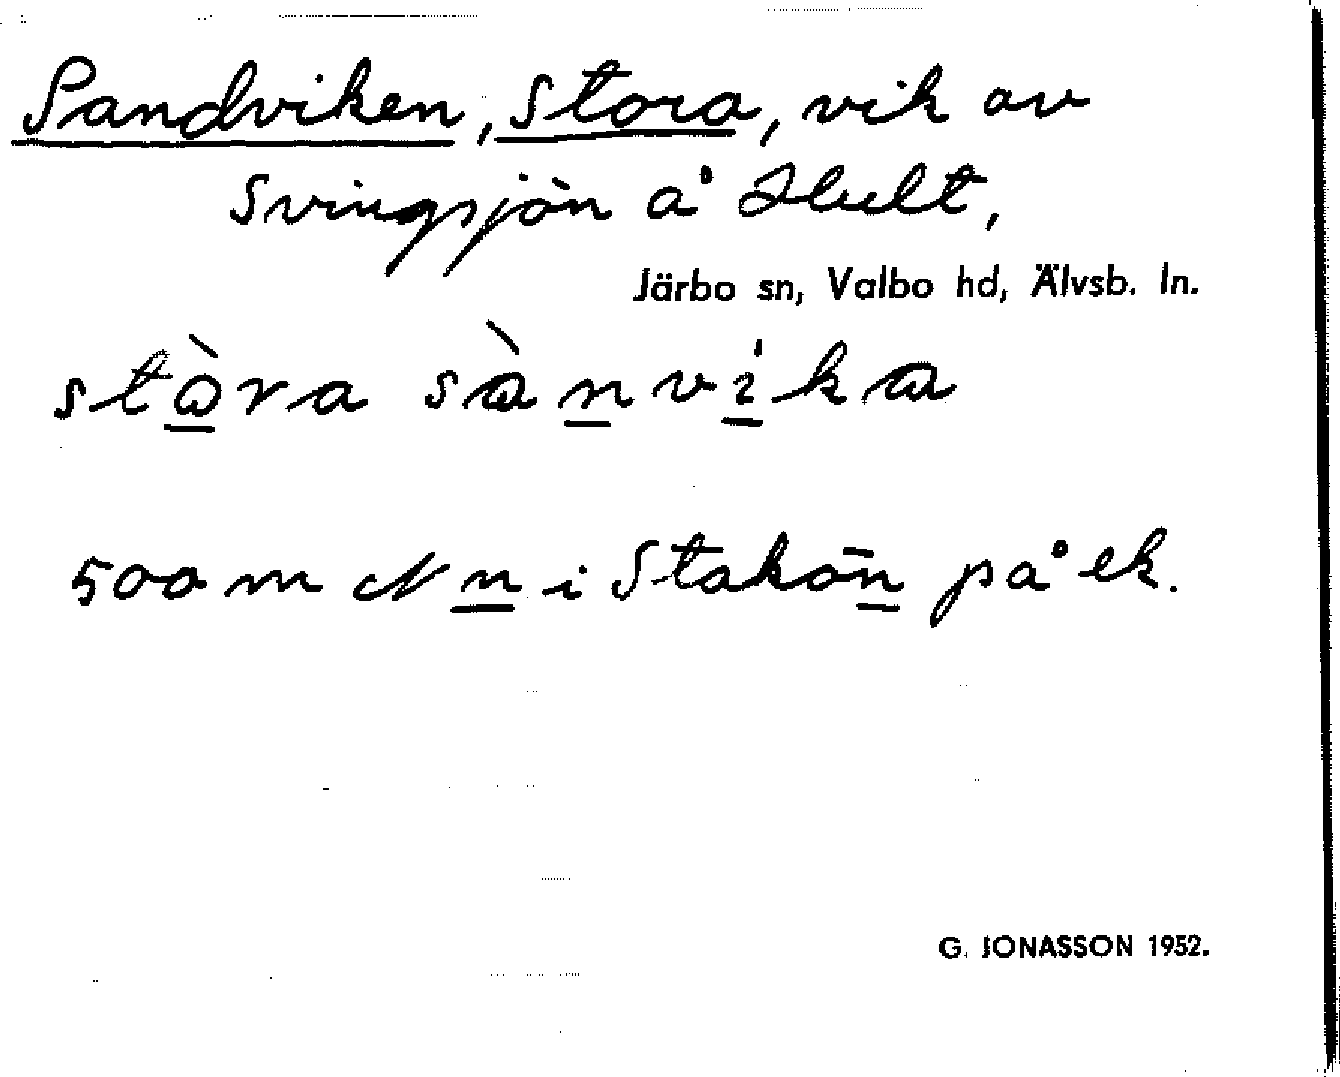 Sandviken, Stora, vik av
Svingsjön å Hult,
Järbo sn, Valbo hd, Älvsb. ln.
stòra sànvika
500 m N n i Stakōn på ek.
G. JONASSON 1952.